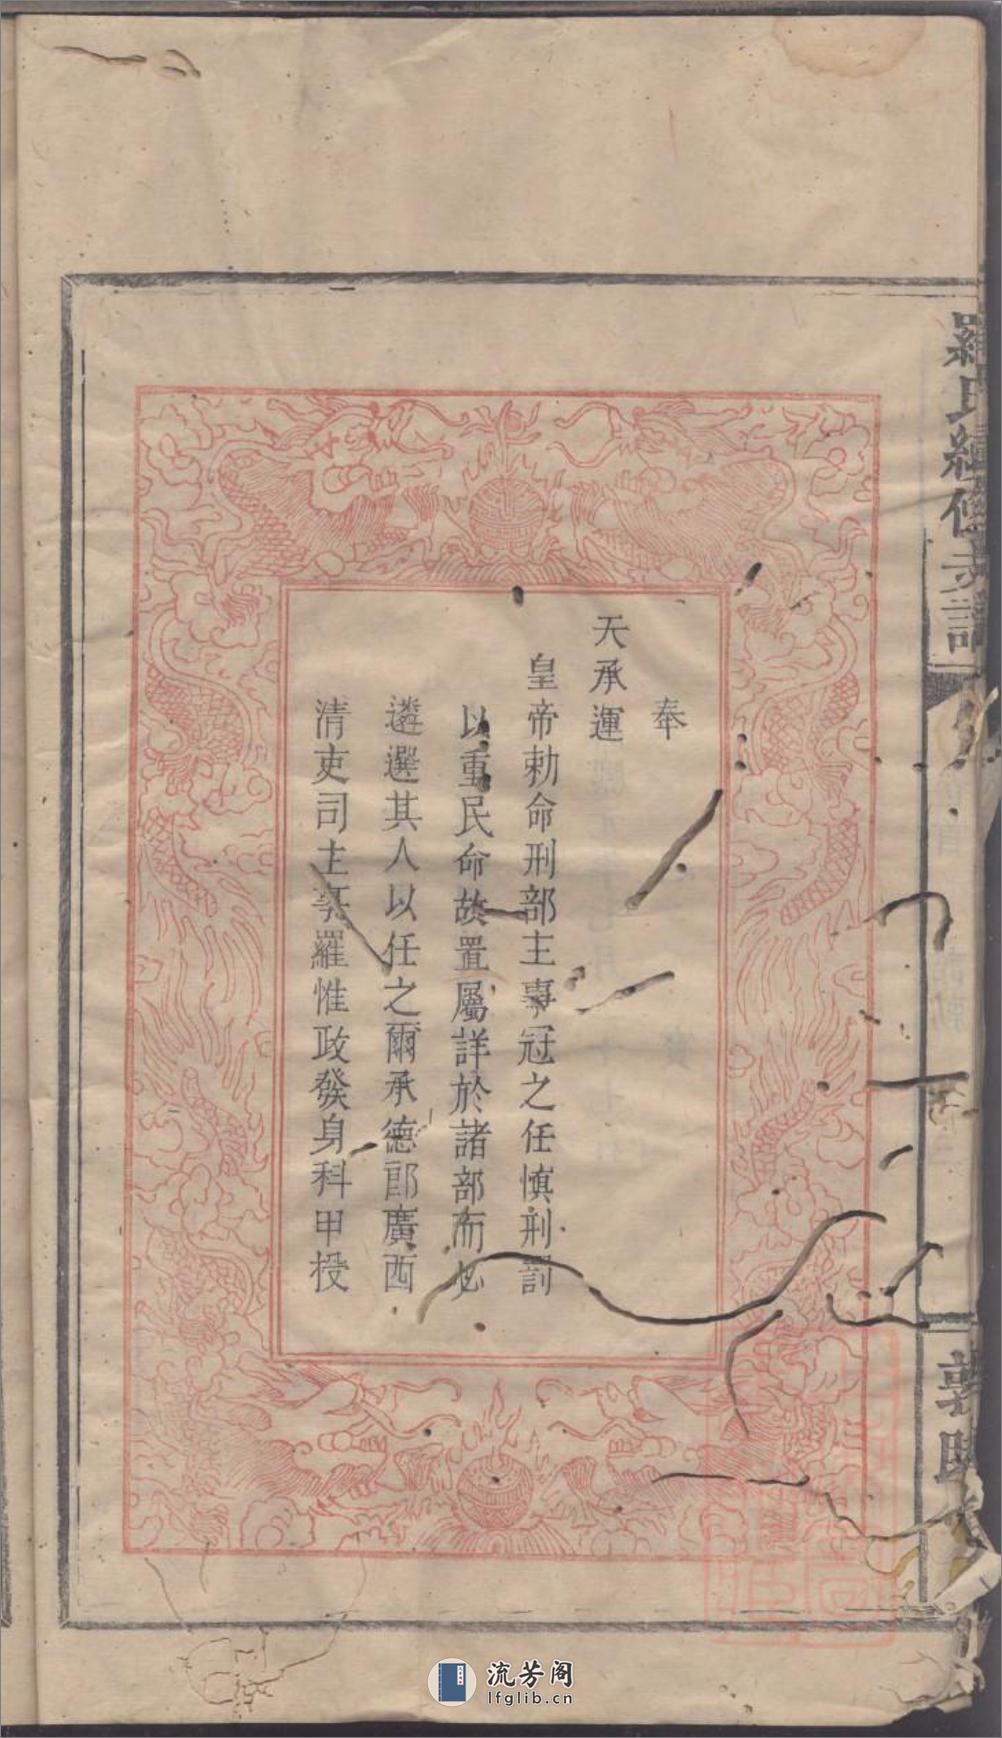 奉
天承運
皇帝勅命刑部主事冠之任慎刑罰
以重民命故置屬詳於諸部而必
遴選其人以任之爾承德郎廣西
清吏司主事羅惟政發身科甲投
羅氏續修族譜
敦睦
流芳阁
lfglib.cn